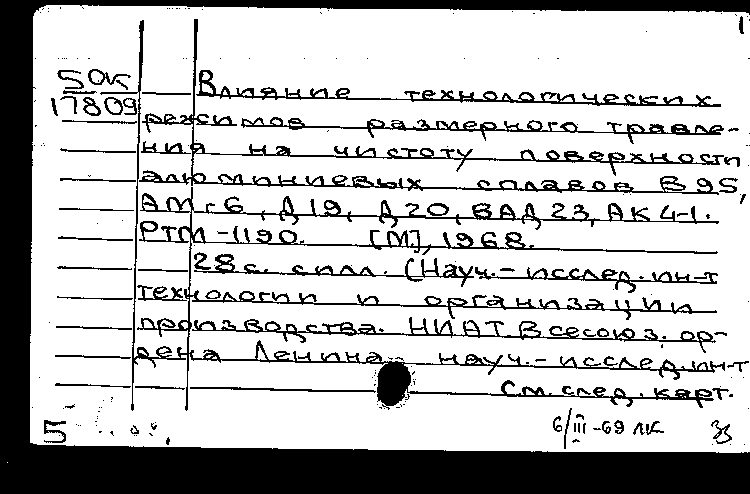 1
50К
17809
Влияние технологических
режимов размерного травле-
ния на чистоту поверхности
алюминиевых сплавов В95,
АМг6, Д19, Д20, ВАД23, АК4-1.
РТМ-1190. [М], 1968.
28 с. с илл. (Науч.-исслед. ин-т
технологии и организации
производства. НИАТ Всесоюз. ор-
дена Ленина науч.-исслед. ин-т
См. след. карт.
5
6/III-69 ЛК